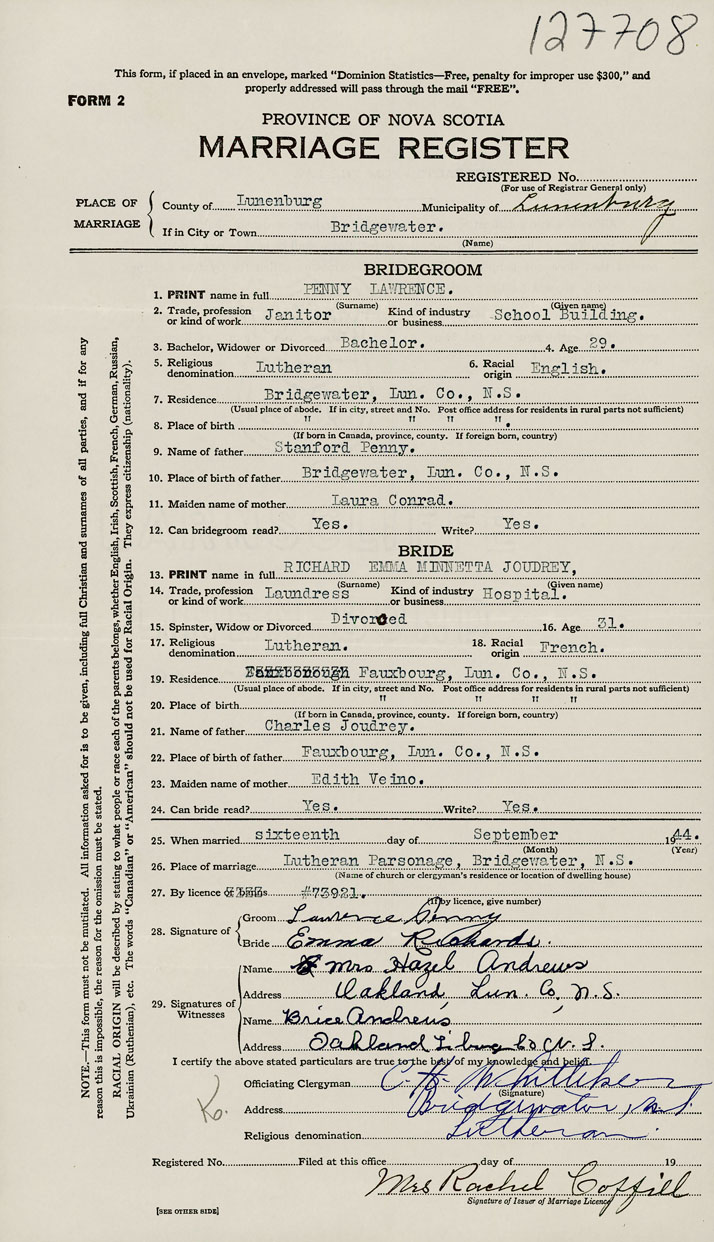 127708
This form, if placed in an envelope, marked "Dominion Statistics—Free, penalty for improper use $300," and
properly addressed will pass through the mail "FREE".
FORM 2
PROVINCE OF NOVA SCOTIA
MARRIAGE REGISTER
REGISTERED No.
(For use of Registrar General only)
PLACE OF MARRIAGE
County of Lunenburg Municipality of Lunenburg
If in City or Town Bridgewater.
(Name)
BRIDEGROOM
1. PRINT name in full PENNY LAWRENCE.
(Surname) (Given name)
2. Trade, profession or kind of work Janitor Kind of industry or business School Building.
3. Bachelor, Widower or Divorced Bachelor. 4. Age 29.
5. Religious denomination Lutheran 6. Racial origin English.
7. Residence Bridgewater, Lun. Co., N.S.
(Usual place of abode. If in city, street and No. Post office address for residents in rural parts not sufficient)
8. Place of birth " " " ".
(If born in Canada, province, county. If foreign born, country)
9. Name of father Stanford Penny.
10. Place of birth of father Bridgewater, Lun. Co., N.S.
11. Maiden name of mother Laura Conrad.
12. Can bridegroom read? Yes. Write? Yes.
BRIDE
13. PRINT name in full RICHARD EMMA MINNETTA JOUDREY,
(Surname) (Given name)
14. Trade, profession or kind of work Laundress Kind of industry or business Hospital.
15. Spinster, Widow or Divorced Divorced 16. Age 31.
17. Religious denomination Lutheran. 18. Racial origin French.
19. Residence Fauxbourg, Lun. Co., N.S.
(Usual place of abode. If in city, street and No. Post office address for residents in rural parts not sufficient)
20. Place of birth " " " "
(If born in Canada, province, county. If foreign born, country)
21. Name of father Charles Joudrey.
22. Place of birth of father Fauxbourg, Lun. Co., N.S.
23. Maiden name of mother Edith Veino.
24. Can bride read? Yes. Write? Yes.
25. When married sixteenth day of September 1944.
(Month) (Year)
26. Place of marriage Lutheran Parsonage, Bridgewater, N.S.
(Name of church or clergyman's residence or location of dwelling house)
27. By licence #73921.
(If by licence, give number)
28. Signature of
Groom Lawrence Penny
Bride Emma Richards.
29. Signatures of Witnesses
Name Mrs Hazel Andrews
Address Oakland Lun. Co, N.S.
Name Brice Andrews
Address Oakland L'burg Co N. S.
I certify the above stated particulars are true to the best of my knowledge and belief.
Officiating Clergyman C. H. Whitteker
(Signature)
Address Bridgewater, N.S.
Religious denomination Lutheran.
Ko.
Registered No. Filed at this office day of 19
Mrs Rachel Coffill
Signature of Issuer of Marriage Licence
[SEE OTHER SIDE]
NOTE.—This form must not be mutilated. All information asked for is to be given, including full Christian and surnames of all parties, and if for any
reason this is impossible, the reason for the omission must be stated.
RACIAL ORIGIN will be described by stating to what people or race each of the parents belongs, whether English, Irish, Scottish, French, German, Russian,
Ukrainian (Ruthenian), etc. The words "Canadian" or "American" should not be used for Racial Origin. They express citizenship (nationality).